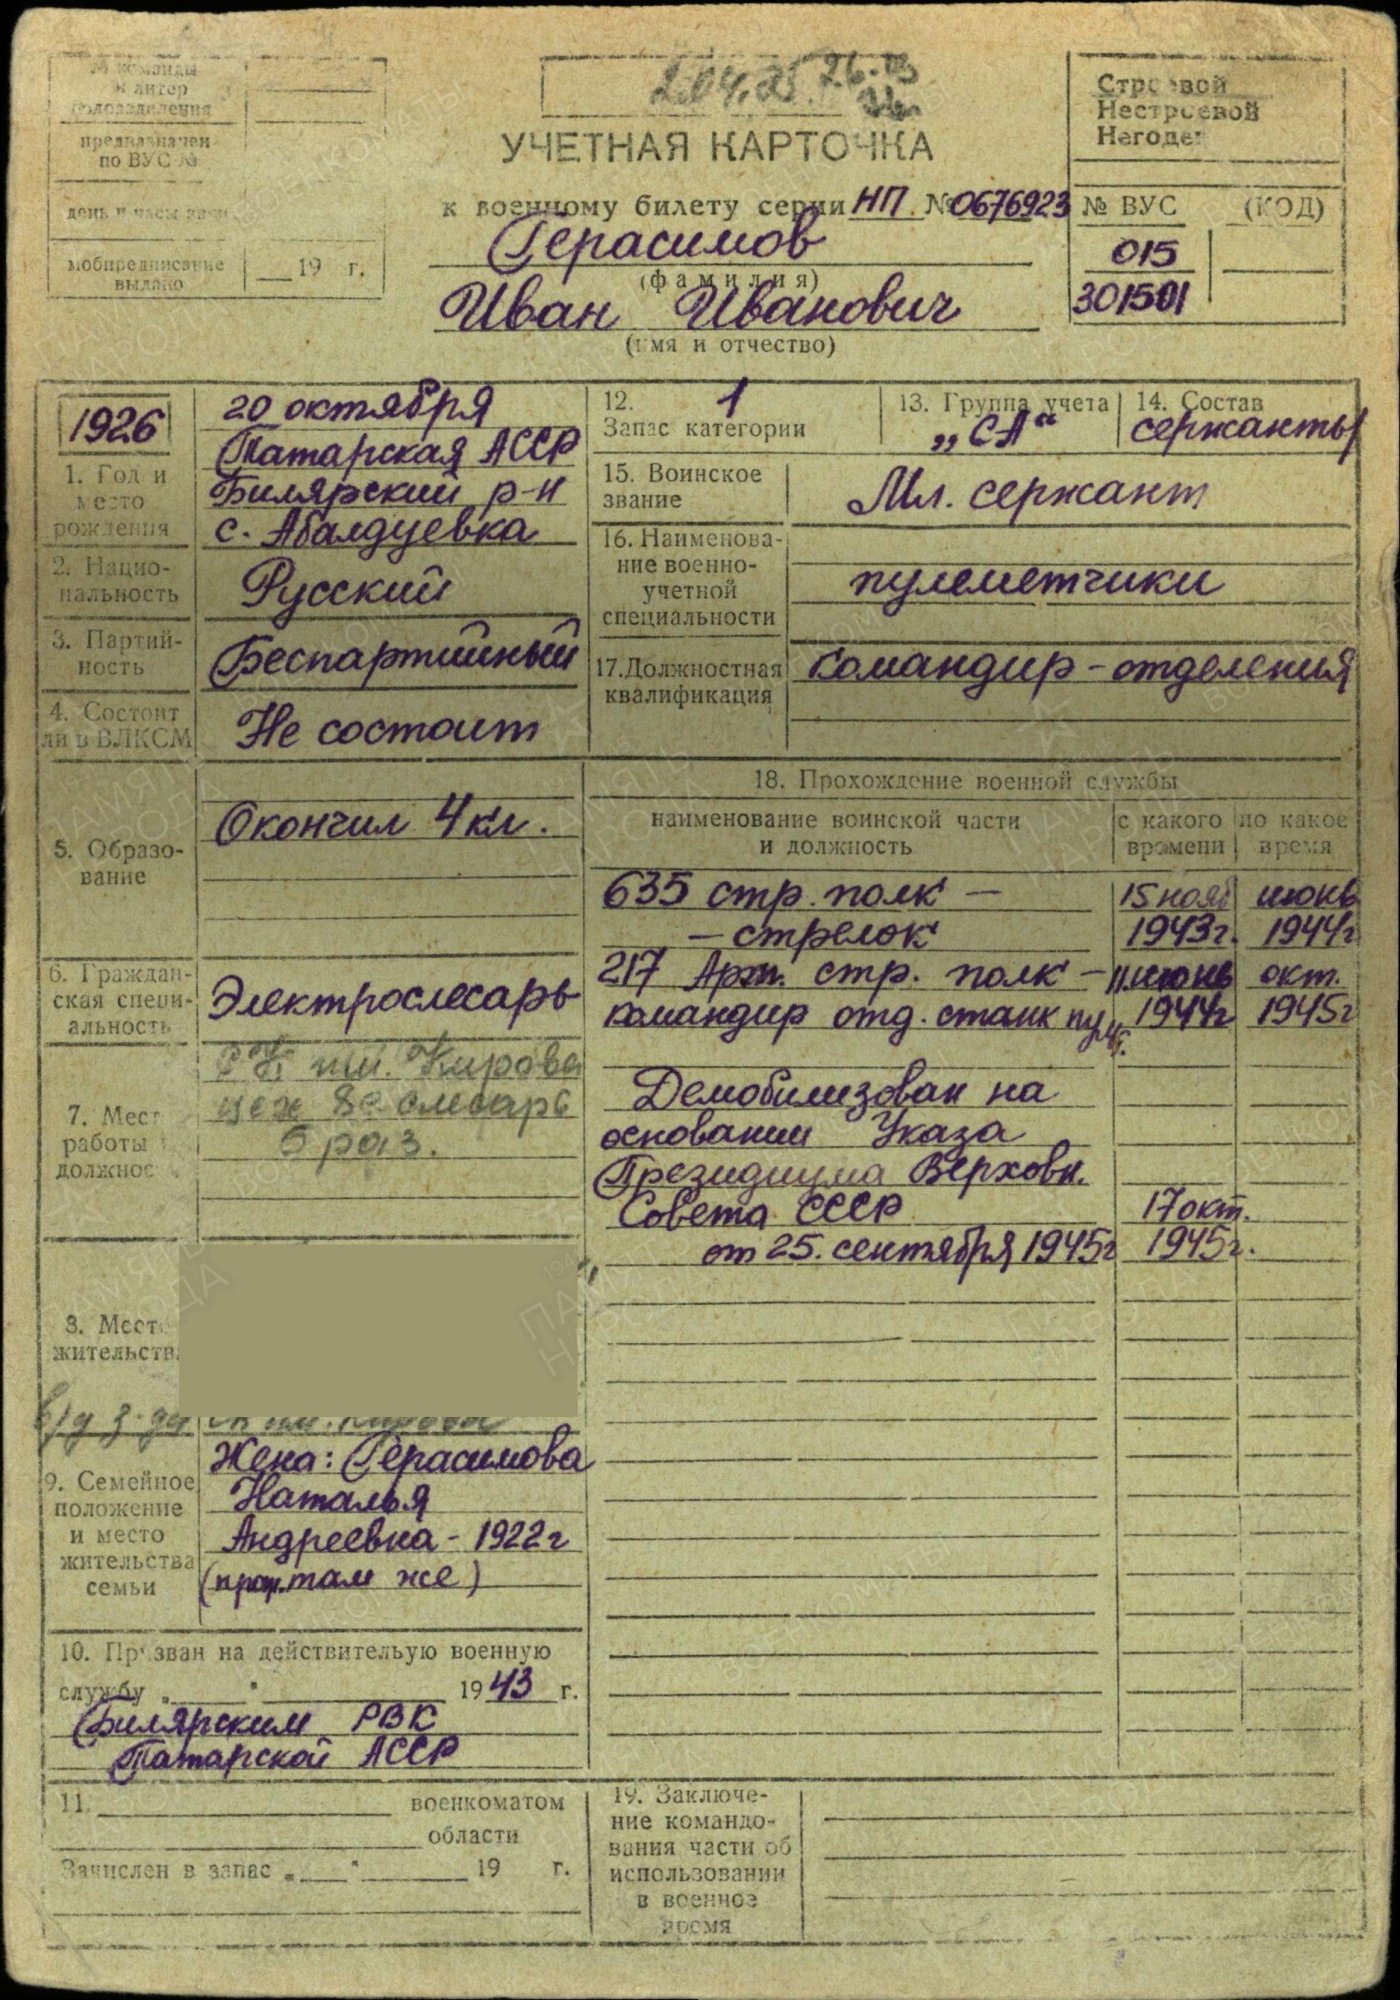 № команды
и литер
подразделения
предназначен
по ВУС №
день и часы явки
мобпредписание
выдано
19 г.
УЧЕТНАЯ КАРТОЧКА
к военному билету серии НП № 0676923
Герасимов
(фамилия)
Иван Иванович
(имя и отчество)
Строевой
Нестроевой
Негоден
№ ВУС (КОД)
015
301501
1926
1. Год и
место
рождения
20 октября
Татарская АССР
Билярский р-н
с. Абалдуевка
2. Нацио-
нальность
Русский
3. Партий-
ность
Беспартийный
4. Состоит
ли в ВЛКСМ
Не состоит
5. Образо-
вание
Окончил 4 кл.
6. Граждан-
ская специ-
альность
Электрослесарь
7. Мест
работы
должнос
им. Кирова
цех слесарь
5 раз.
8. Место
жительства
им. Кирова
9. Семейное
положение
и место
жительства
семьи
Жена: Герасимова
Наталья
Андреевна - 1922г
(прож. там же)
10. Призван на действительую военную
службу „ " 1943 г.
Билярским РВК
Татарской АССР
11. военкоматом
области
Зачислен в запас „ " 19 г.
12. 1
Запас категории
13. Группа учета
„СА"
14. Состав
сержанты
15. Воинское
звание
Мл. сержант
16. Наименова-
ние военно-
учетной
специальности
пулеметчики
17. Должностная
квалификация
командир - отделения
18. Прохождение военной службы
наименование воинской части
и должность
с какого
времени
по какое
время
635 стр. полк — 15 нояб июнь
— стрелок 1943г. 1944г
217 Арт. стр. полк — июнь окт.
командир отд. станк пул. 1944г 1945г
Демобилизован на
основании Указа
Президиума Верховн.
Совета СССР 17 окт.
от 25. сентября 1945г 1945г.
19. Заключе-
ние командо-
вания части об
использовании
в военное
время